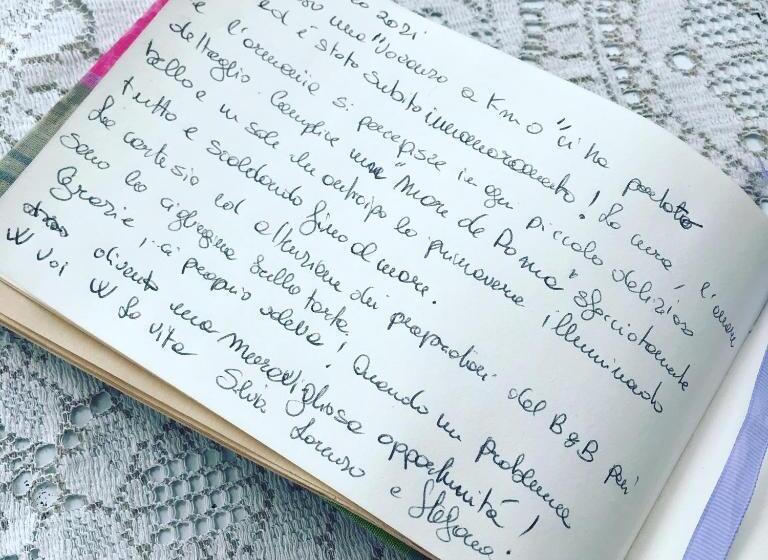 2021
una "vacanza a Km 0" ci ha portato
ed è stato subito innamoramento! La cura, l'amore
e l'armonia si percepisce in ogni piccolo delizioso
dettaglio. Complice una "Mare de Roma" sfacciatamente
bello e un sole che anticipa la primavera illuminando
tutto e scaldando fino al mare.
La cortesia ed attenzione dei proprietari del B&B poi
sono la ciliegina sulla torta.
Grazie, ci proprio voleva! Quando un problema
diventa una meravigliosa opportunità!
W voi W la vita
Silvia Lorenzo e Stefano.